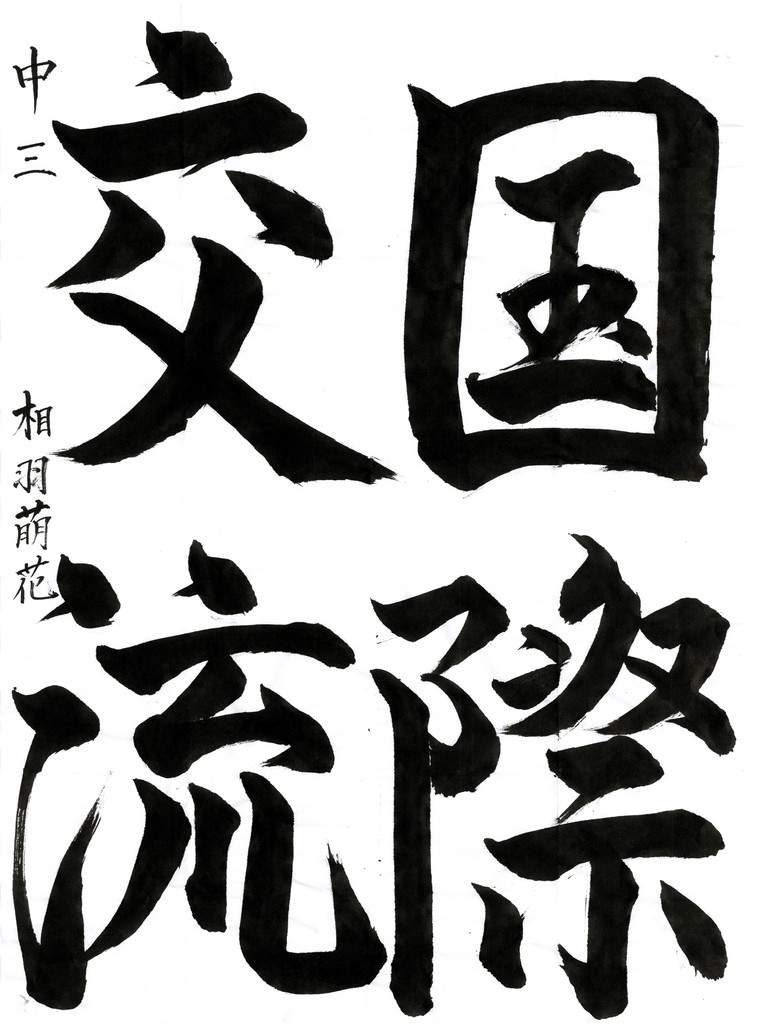 国際
交流
中三 相羽萌花